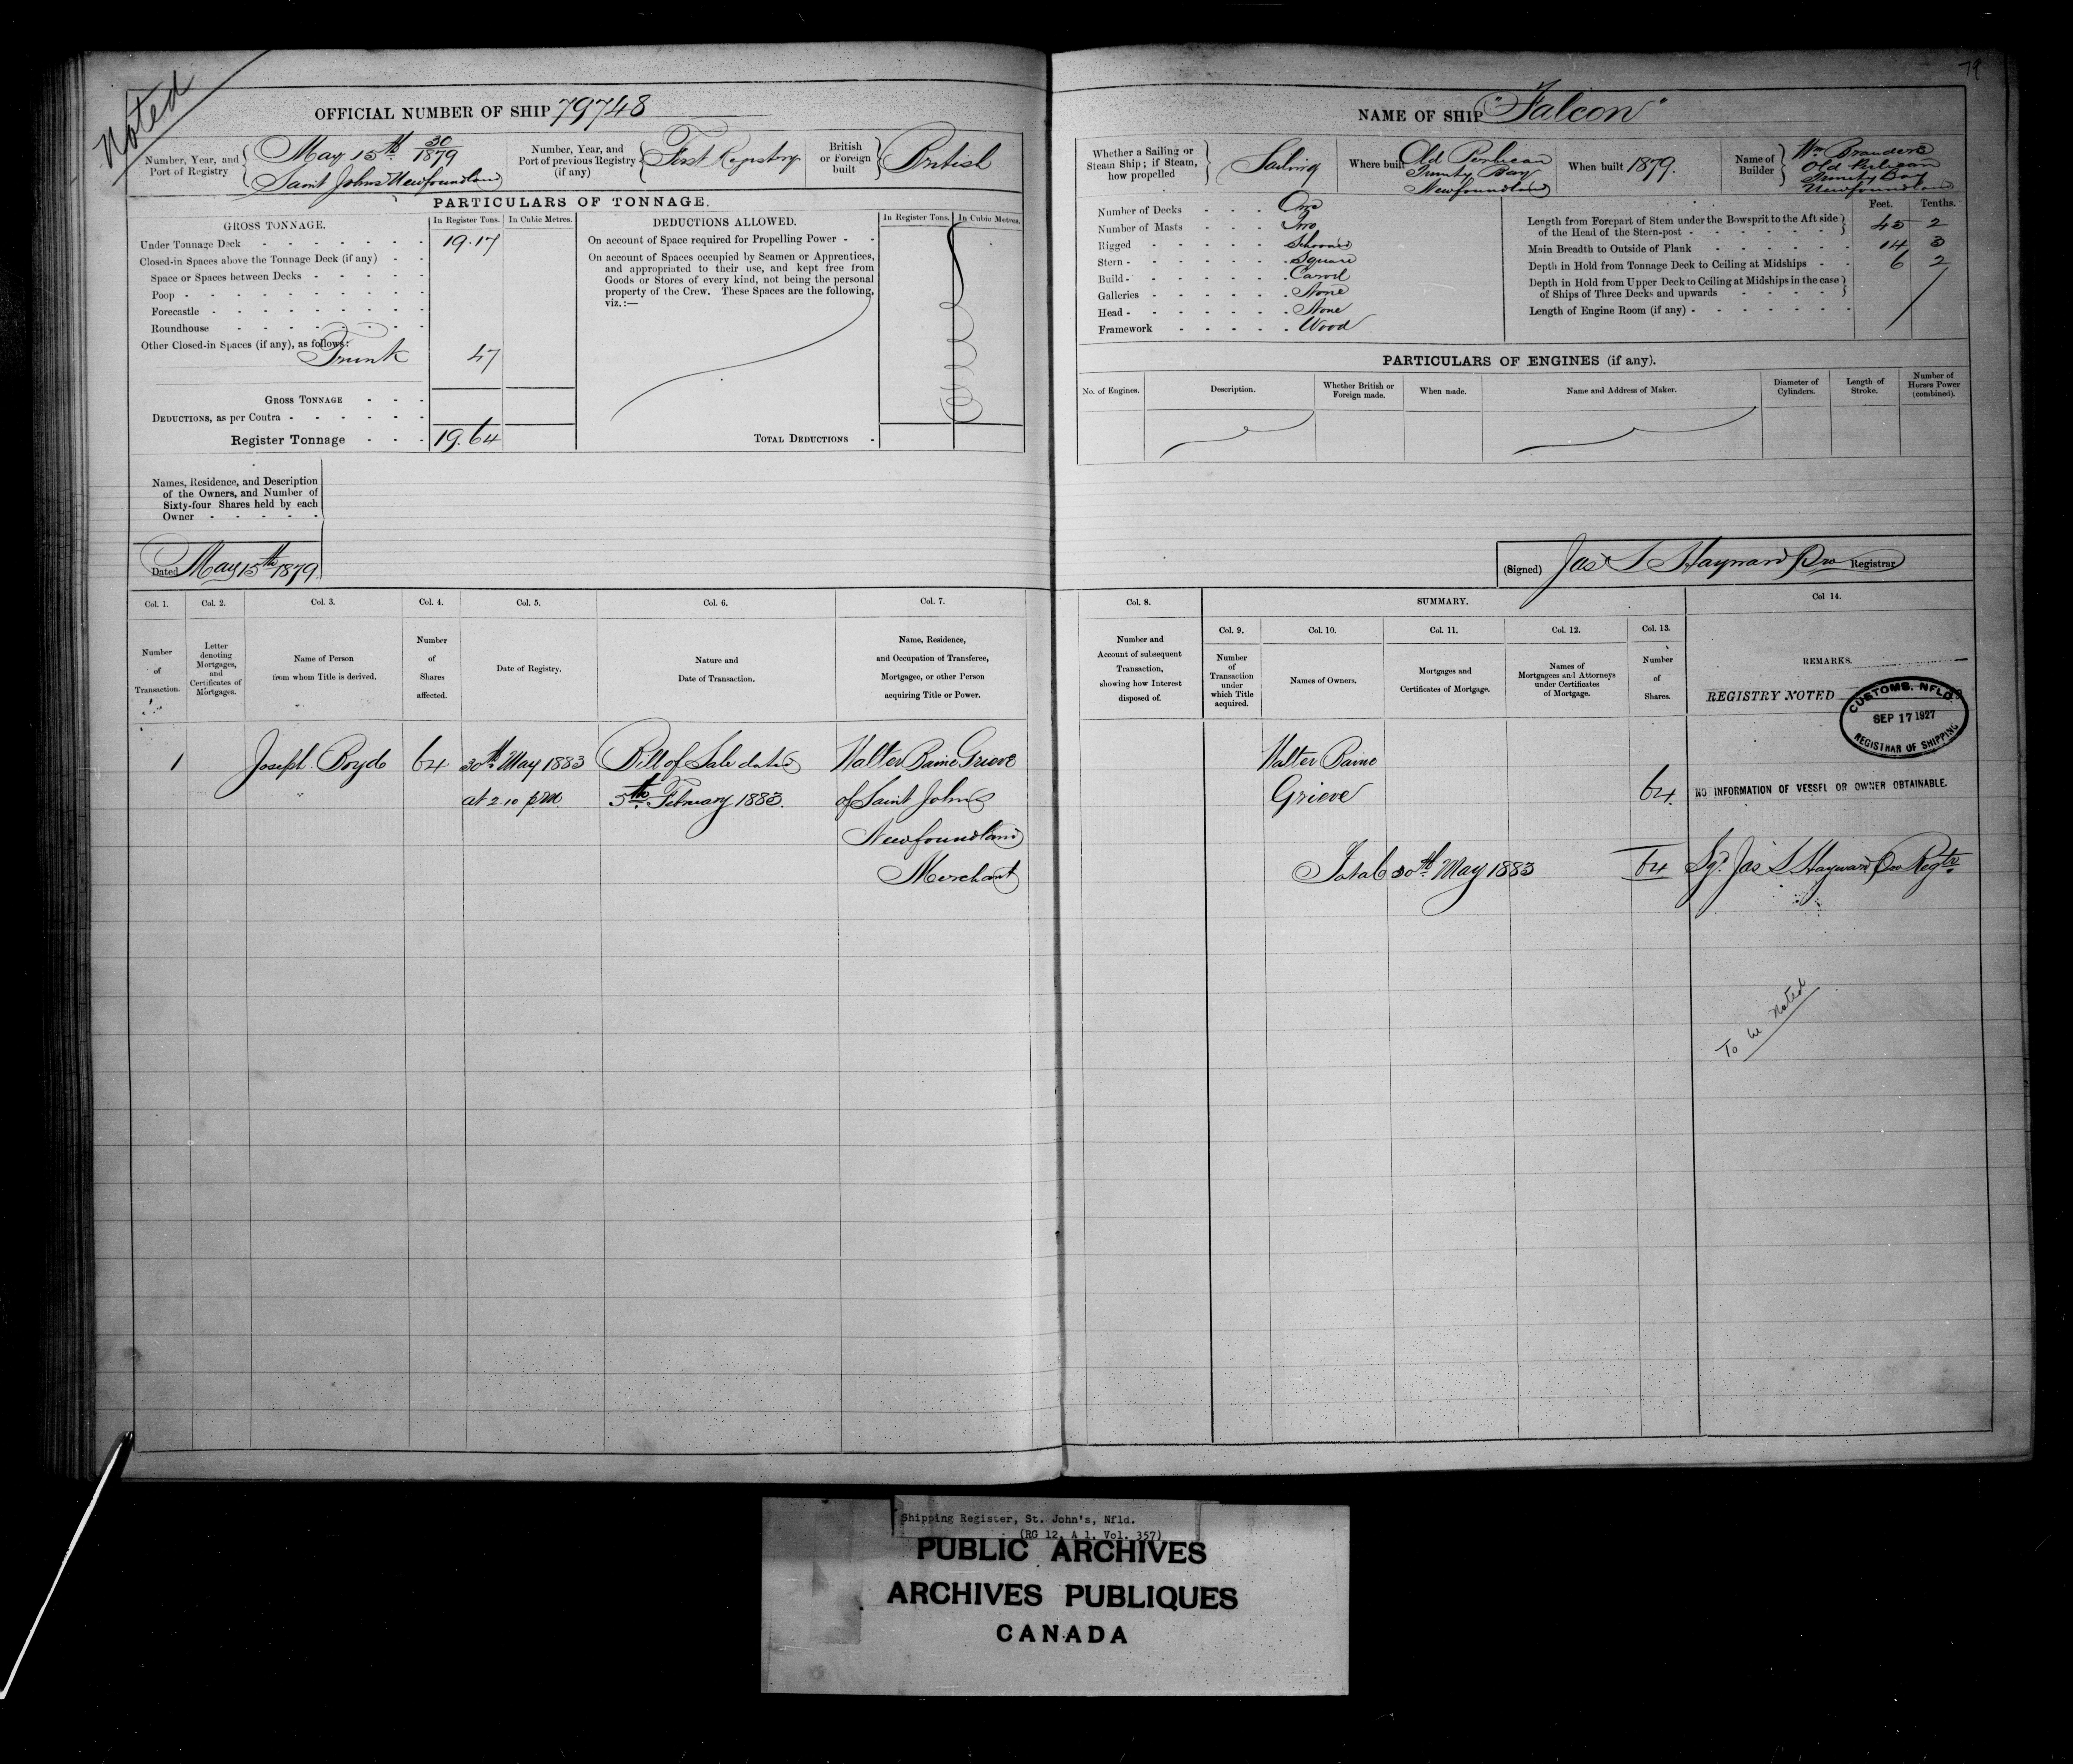 Noted
79
OFFICIAL NUMBER OF SHIP 79748
Number, Year, and Port of Registry
May 15th 30/1879
Saint Johns Newfoundland
Number, Year, and Port of previous Registry (if any)
First Registry
British or Foreign built
British
PARTICULARS OF TONNAGE.
GROSS TONNAGE.
In Register Tons. In Cubic Metres.
Under Tonnage Deck - 19.17
Closed-in Spaces above the Tonnage Deck (if any)
Space or Spaces between Decks
Poop
Forecastle
Roundhouse
Other Closed-in Spaces (if any), as follows:
Trunk 47
GROSS TONNAGE
DEDUCTIONS, as per Contra
Register Tonnage 19.64
DEDUCTIONS ALLOWED.
In Register Tons. In Cubic Metres.
On account of Space required for Propelling Power
On account of Spaces occupied by Seamen or Apprentices,
and appropriated to their use, and kept free from
Goods or Stores of every kind, not being the personal
property of the Crew. These Spaces are the following,
viz.:—
TOTAL DEDUCTIONS
Names, Residence, and Description
of the Owners, and Number of
Sixty-four Shares held by each
Owner
Dated May 15th 1879
NAME OF SHIP "Falcon"
Whether a Sailing or Steam Ship; if Steam, how propelled
Sailing
Where built
Old Perlican
Trinity Bay
Newfoundland
When built 1879.
Name of Builder
Wm
Old Perlican
Trinity Bay
Newfoundland
Number of Decks One
Number of Masts Two
Rigged Schooner
Stern Square
Build Carvel
Galleries None
Head None
Framework Wood
Feet. Tenths.
Length from Forepart of Stem under the Bowsprit to the Aft side
of the Head of the Stern-post 45 2
Main Breadth to Outside of Plank 14 3
Depth in Hold from Tonnage Deck to Ceiling at Midships 6 2
Depth in Hold from Upper Deck to Ceiling at Midships in the case
of Ships of Three Decks and upwards
Length of Engine Room (if any)
PARTICULARS OF ENGINES (if any).
No. of Engines. Description. Whether British or Foreign made. When made. Name and Address of Maker. Diameter of Cylinders. Length of Stroke. Number of Horses Power (combined).
(Signed) Jas S Hayward Pro Registrar
Col. 1. Col. 2. Col. 3. Col. 4. Col. 5. Col. 6. Col. 7.
Number of Transaction.
Letter denoting Mortgages, and Certificates of Mortgages.
Name of Person from whom Title is derived.
Number of Shares affected.
Date of Registry.
Nature and Date of Transaction.
Name, Residence, and Occupation of Transferee, Mortgagee, or other Person acquiring Title or Power.
1 Joseph Boyd 64 30th May 1883 Bill of Sale dated Walter Baine Grieve
at 2.10 p.m. 5th February 1883. of Saint Johns
Newfoundland
Merchant
Col. 8. SUMMARY. Col 14.
Col. 9. Col. 10. Col. 11. Col. 12. Col. 13.
Number and Account of subsequent Transaction, showing how Interest disposed of.
Number of Transaction under which Title acquired.
Names of Owners.
Mortgages and Certificates of Mortgage.
Names of Mortgagees and Attorneys under Certificates of Mortgage.
Number of Shares.
REMARKS.
REGISTRY NOTED
CUSTOMS. NFLD.
SEP 17 1927
REGISTRAR OF SHIPPING
Walter Baine
Grieve 64. NO INFORMATION OF VESSEL OR OWNER OBTAINABLE.
Total 30th May 1883 64 Sgd. Jas S Hayward Pro Regtr.
To be Noted
Shipping Register, St. John's, Nfld.
(RG 12, A 1, Vol. 357)
PUBLIC ARCHIVES
ARCHIVES PUBLIQUES
CANADA